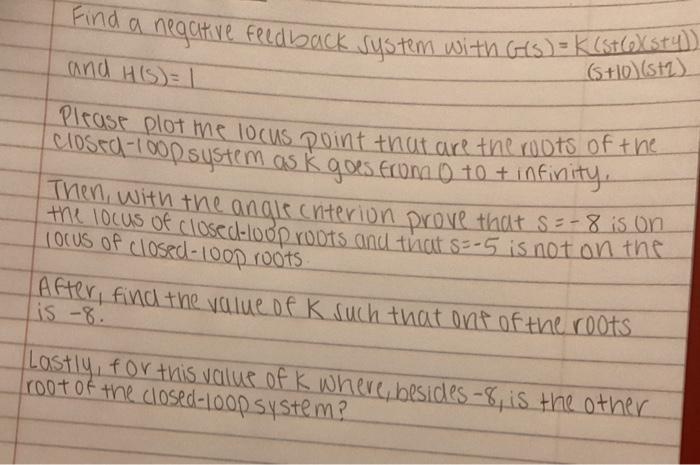 Find a negative feedback system with G(s) = K(s+6)(s+4))
and H(s) = 1 (s+10)(s+2)
Please plot the locus point that are the roots of the
closed-loop system as K goes from 0 to + infinity.
Then, with the angle criterion prove that s = -8 is on
the locus of closed-loop roots and that s=-5 is not on the
locus of closed-loop roots.
After, find the value of K such that one of the roots
is -8.
Lastly, for this value of K where, besides -8, is the other
root of the closed-loop system?